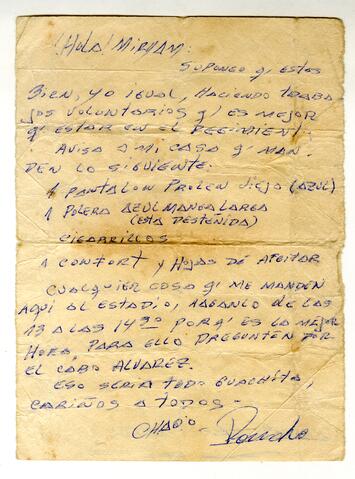 ¡HOLA! MIRYAM:
SUPONGO q' ESTES
BIEN, YO IGUAL, HACIENDO TRABA
JOS VOLUNTARIOS q' ES MEJOR
q' ESTAR EN EL REGIMIENT.
AVISA A MI CASA q' MAN
DEN LO SIGUIENTE:
1 PANTALON PROLEN VIEJO (AZUL)
1 POLERA AZUL MANGA LARGA
(ESTA DESTEÑIDA)
CIGARRILLOS
1 CONFORT Y HOJAS DE AFEITAR
CUALQUIER COSA q' ME MANDEN
AQUI AL ESTADIO, HAGANLO DE LAS
13 A LAS 14³⁰ PORq' ES LA MEJOR
HORA, PARA ELLO PREGUNTEN POR
EL CABO ALVAREZ.
ESO SERIA TODO GUACHITA,
CARIÑOS A TODOS-
CHAO- Poncho